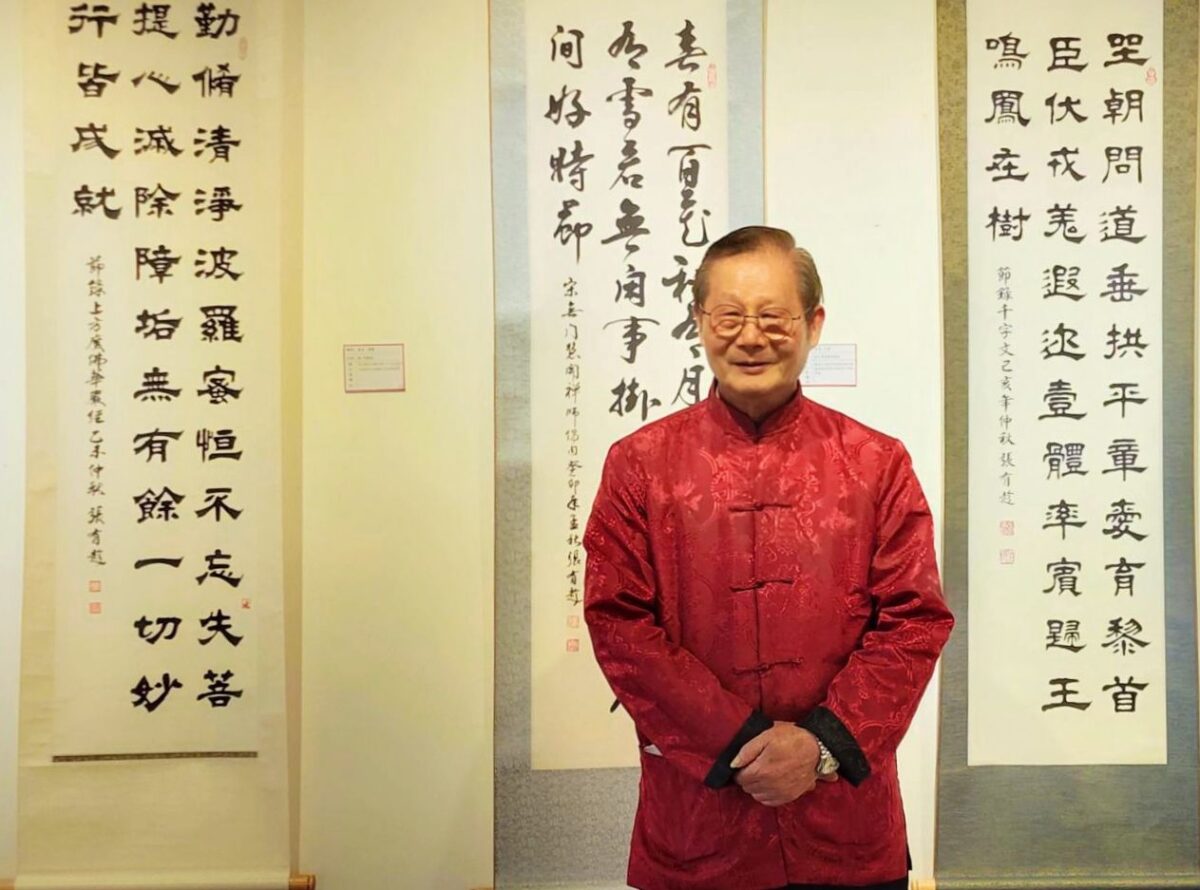 坐朝問道垂拱平章愛育黎首
臣伏戎羌遐迩壹體率賓歸王
鳴鳳在樹
節錄千字文己亥年仲秋 張
春有百花秋有月
有雪若無闲事掛
间好時節
宋無门慧開禪師偈句癸卯年孟秋張
勤脩清淨波羅蜜恒不忘失菩
提心滅除障垢無有餘一切妙
行皆成就
節錄大方廣佛華嚴經乙未仲秋 張